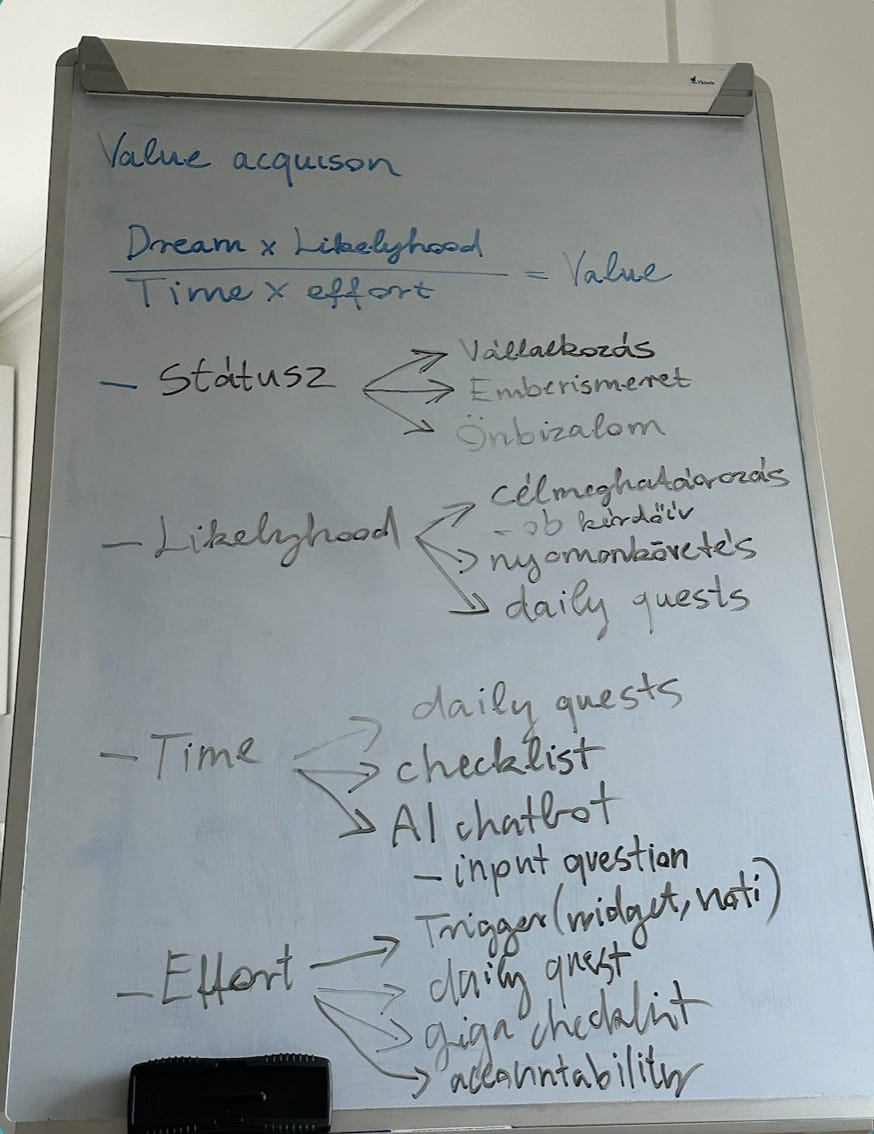 Value acquison
Dream x Likelyhood
Time x effort
= Value
- Státusz
Vállalkozás
Emberismeret
Önbizalom
- Likelyhood
célmeghatározás
- ob kérdőív
nyomonkövetés
daily quests
- Time
daily quests
checklist
AI chatbot
- input question
- Effort
Trigger (widget, noti)
daily quest
giga checklist
accountability